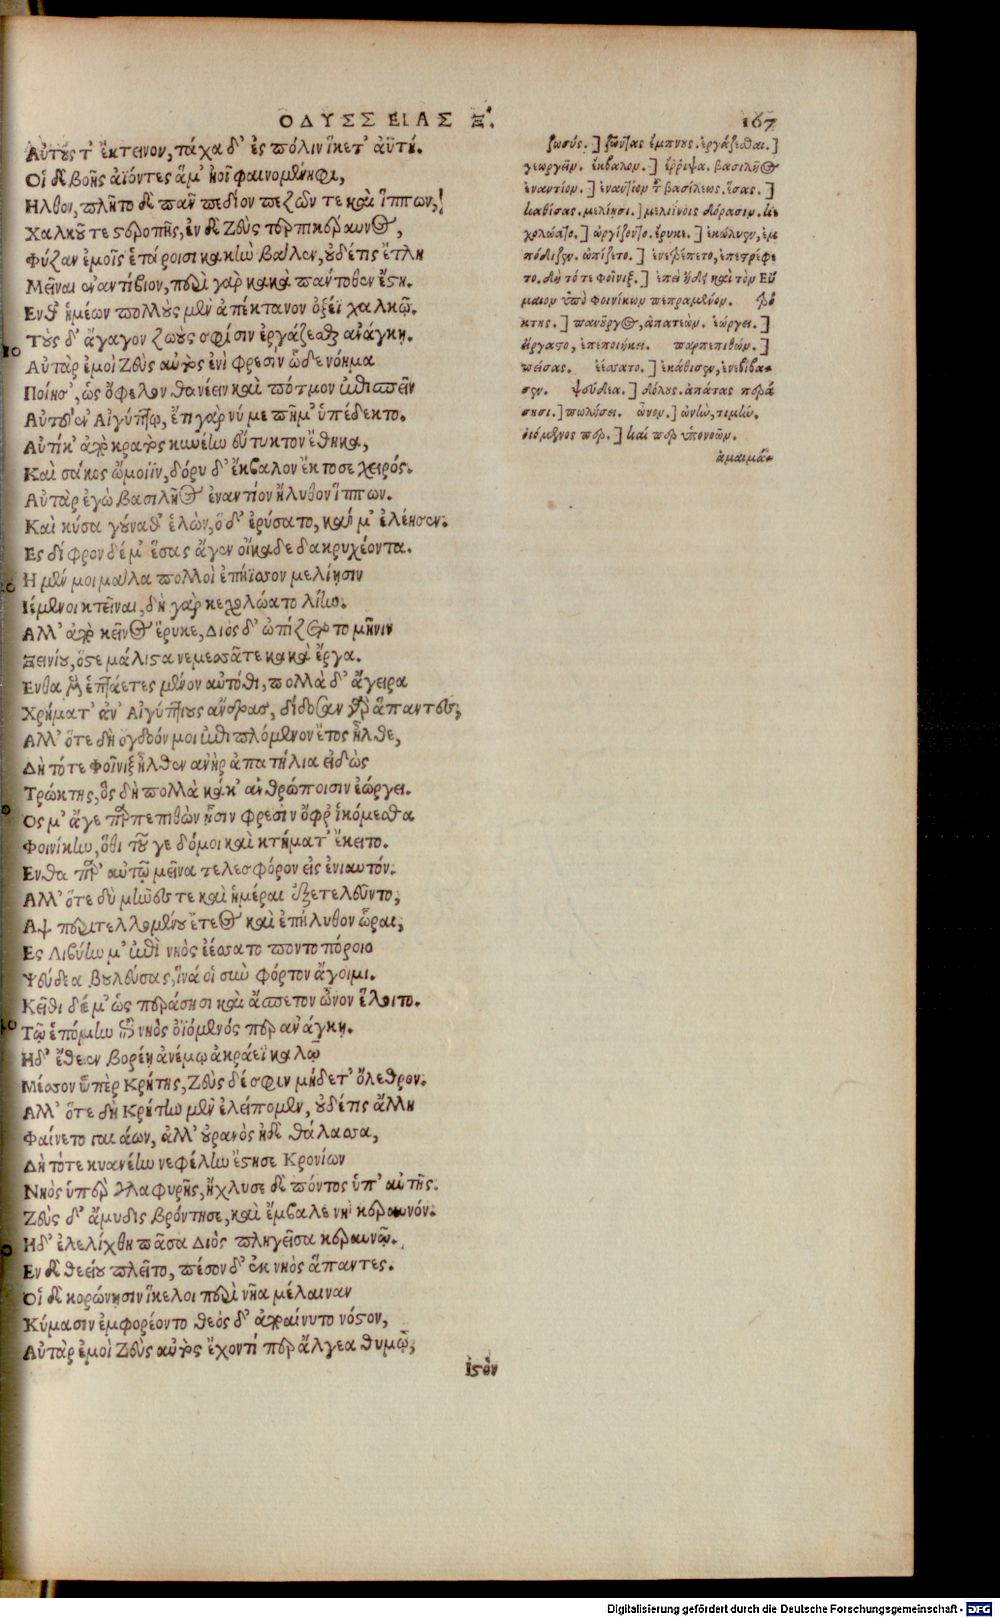 ΟΔΥΣΣΕΙΑΣ Ξ. 167
Αὐτούς τ' ἔκτεινον, τάχα δ' ἐς πόλιν ἵκετ' ἀϋτή.
Οἱ δὲ βοῆς ἀΐοντες ἅμ' ἠοῖ φαινομένηφι,
Ηλθον, πλῆτο δὲ πᾶν πεδίον πεζῶν τε καὶ ἵππων,
Χαλκοῦ τε στεροπῆς, ἐν δὲ Ζεὺς τερπικέραυνος,
Φύζαν ἐμοῖς ἑτάροισι κακὴν βάλεν, οὐδέ τις ἔτλη
Μεῖναι ἐναντίβιον, περὶ γὰρ κακὰ πάντοθεν ἔστη.
Ενθ' ἡμέων πολλοὺς μὲν ἀπέκτανον ὀξέϊ χαλκῷ.
Τοὺς δ' ἄγαγον ζωοὺς σφίσιν ἐργάζεσθαι ἀνάγκη.
Αὐτὰρ ἐμοὶ Ζεὺς αὐτὸς ἐνὶ φρεσὶν ὧδε νόημα
Ποίησ', ὡς ὄφελον θανέειν καὶ πότμον ἐπισπεῖν
Αὐτοῦ ἐν Αἰγύπτῳ, ἔτι γάρ νύ με πῆμ' ὑπέδεκτο.
Αὐτίκ' ἀπὸ κρατὸς κυνέην εὔτυκτον ἔθηκα,
Καὶ σάκος ὤμοιϊν, δόρυ δ' ἔκβαλον ἔκτοσε χειρός.
Αὐτὰρ ἐγὼ βασιλῆος ἐναντίον ἤλυθον ἵππων.
Καὶ κύσα γούναθ' ἑλὼν, ὁ δ' ἐρύσατο, καί μ' ἐλέησεν.
Ες δίφρον δέ μ' ἕσας ἄγεν οἴκαδε δακρυχέοντα.
Η μέν μοι μάλα πολλοὶ ἐπήϊσσον μελίῃσιν
Ιέμενοι κτεῖναι, δὴ γὰρ κεχολώατο λίην.
Αλλ' ἀπὸ κεῖνος ἔρυκε, Διὸς δ' ὠπίζετο μῆνιν
Ξεινίου, ὅστε μάλιστα νεμεσσᾶται κακὰ ἔργα.
Ενθα μὲν ἑπτάετες μένον αὐτόθι, πολλὰ δ' ἄγειρα
Χρήματ' ἀν' Αἰγυπτίους ἄνδρας, δίδοσαν γὰρ ἅπαντες,
Αλλ' ὅτε δὴ ὄγδοόν μοι ἐπιπλόμενον ἔτος ἦλθε,
Δὴ τότε Φοῖνιξ ἦλθεν ἀνὴρ ἀπατήλια εἰδὼς
Τρώκτης, ὃς δὴ πολλὰ κάκ' ἀνθρώποισιν ἐώργει.
Ος μ' ἄγε παρπεπιθὼν ᾗσιν φρεσὶν ὄφρ' ἱκόμεσθα
Φοινίκην, ὅθι τοῦ γε δόμοι καὶ κτήματ' ἔκειτο.
Ενθα παρ' αὐτῷ μεῖνα τελεσφόρον εἰς ἐνιαυτόν.
Αλλ' ὅτε δὴ μῆνές τε καὶ ἡμέραι ἐξετελεῦντο,
Αψ περιτελλομένου ἔτεος καὶ ἐπήλυθον ὧραι,
Ες Λιβύην μ' ἐπὶ νηὸς ἐέσσατο ποντοπόροιο
Ψεύδεα βουλεύσας, ἵνά οἱ σὺν φόρτον ἄγοιμι.
Κεῖθι δέ μ' ὡς περάσῃσι καὶ ἄσπετον ὦνον ἕλοιτο.
Τῷ ἑπόμην ἐπὶ νηὸς ὀϊόμενός περ ἀνάγκῃ.
Ηδ' ἔθεεν βορέῃ ἀνέμῳ ἀκραέϊ καλῷ
Μέσσον ὑπὲρ Κρήτης, Ζεὺς δέ σφιν μήδετ' ὄλεθρον.
Αλλ' ὅτε δὴ Κρήτην μὲν ἐλείπομεν, οὐδέ τις ἄλλη
Φαίνετο γαιάων, ἀλλ' οὐρανὸς ἠδὲ θάλασσα,
Δὴ τότε κυανέην νεφέλην ἔστησε Κρονίων
Νηὸς ὑπὲρ γλαφυρῆς, ἤχλυσε δὲ πόντος ὑπ' αὐτῆς.
Ζεὺς δ' ἄμυδις βρόντησε, καὶ ἔμβαλε νηῒ κεραυνόν.
Ηδ' ἐλελίχθη πᾶσα Διὸς πληγεῖσα κεραυνῷ.
Εν δὲ θεείου πλεῖτο, πέσον δ' ἐκ νηὸς ἅπαντες.
Οἱ δὲ κορώνῃσιν ἴκελοι περὶ νῆα μέλαιναν
Κύμασιν ἐμφορέοντο θεὸς δ' ἀποαίνυτο νόστον,
Αὐτὰρ ἐμοὶ Ζεὺς αὐτὸς ἔχοντί περ ἄλγεα θυμῷ,
ἱστὸν
ζωούς.] ζῶντας ἔμπνους. ἐργάζεσθαι.]
γεωργεῖν. ἔκβαλον.] ἔρριψα. βασιλῆος
ἐναντίον.] ἐναντίον τοῦ βασίλεως. ἕσας.]
καθίσας. μελίῃσι.] μελιΐνοις δόρασιν. κε
χολώατο.] ὠργίζοντο. ἔρυκε.] ἐκώλυεν, ἐμ
πόδιζεν. ὠπίζετο.] ἐνετρέπετο, ἐπεστρέφε
το. δὴ τότε φοῖνιξ.] ἐπεὶ ᾔδει καὶ τὸν Εὔ
μαιον ὑπὸ φοινίκων πεπραμένον. τρώ
κτης.] πανοῦργος, ἀπατεών. ἐώργει.]
εἴργαστο, ἐπεποιήκει. παρπεπιθών.]
πείσας. ἐέσσατο.] ἐκάθισεν, ἐνεβίβα-
σεν. ψεύδεα.] δόλους. ἀπάτας περά
σησι.] πωλήσει. ὦνον.] ὠνὴν, τιμήν.
ὀϊόμενος περ.] καί περ ὑπονοῶν.
ἀμαιμά-
Digitalisierung gefördert durch die Deutsche Forschungsgemeinschaft - DFG